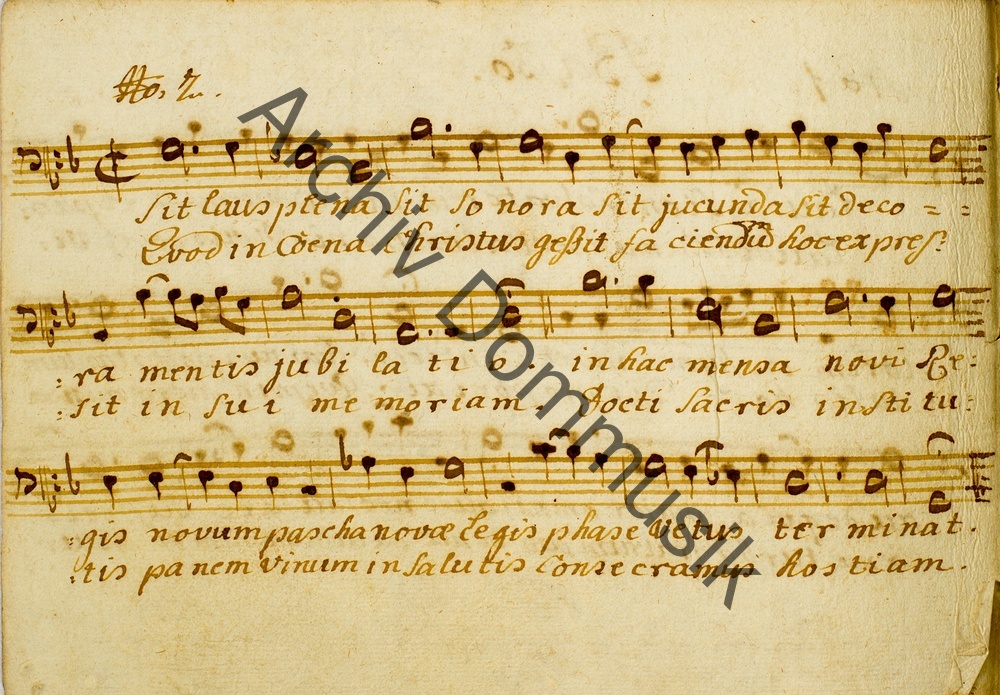 No. 2.
Sit laus plena sit sonora sit jucunda sit deco = =
Quod in Coena Christus geßit faciendũ hoc expres:
: ra mentis jubilatio. in hac mensa novi Re:
: sit in sui memoriam. Docti sacris institu:
: gis novum pascha novæ legis phase vetus terminat.
: tis panem vinum in salutis Consecramus hostiam.
Archiv Dommusik